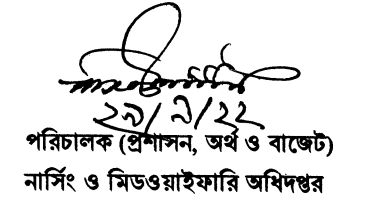 ২৯/৯/২২
পরিচালক (প্রশাসন, অর্থ ও বাজেট)
নার্সিং ও মিডওয়াইফারি অধিদপ্তর